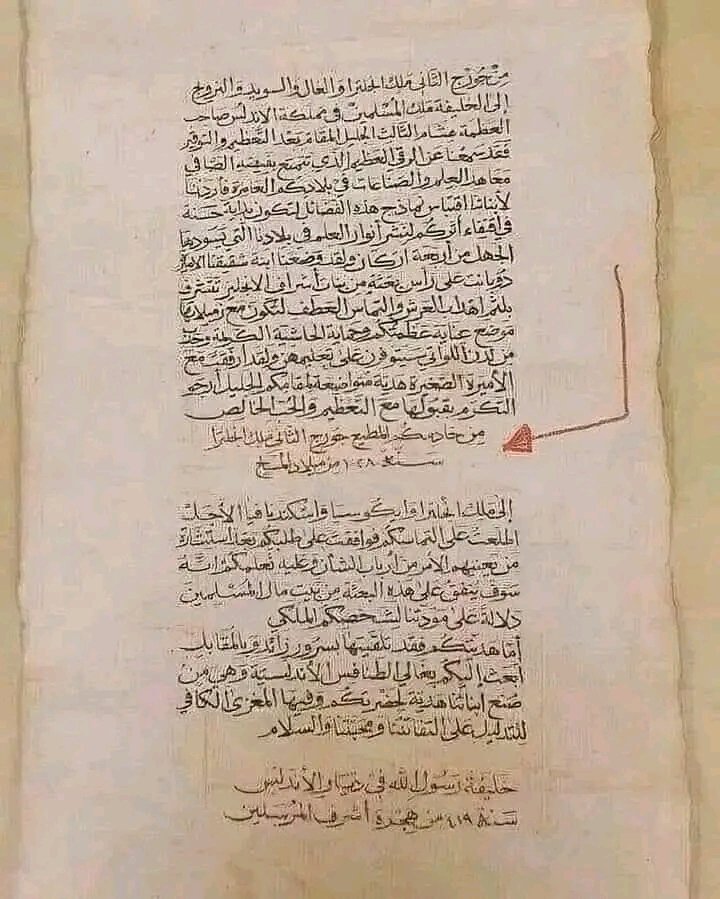 من جورج الثاني ملك انجلترا والغال والسويد والنرويج
إلى الخليفة ملك المسلمين في مملكة الأندلس صاحب
العظمة هشام الثالث الجليل المقام بعد التعظيم والتوقير
فقد سمعنا عن الرقي العظيم الذي تتمتع بفيضه الصافي
معاهد العلم والصناعات في بلادكم العامرة فأردنا
لأبنائنا اقتباس نماذج هذه الفضائل لتكون بداية حسنة
في اقتفاء أثركم لنشر أنوار العلم في بلادنا التي يسودها
الجهل من أربعة أركان ولقد وضعنا ابنة شقيقنا الأميرة
دوبانت على رأس بعثة من بنات أشراف الانجليز تتشرف
بلثم أهداب العرش والتماس العطف لتكون مع زميلاتها
موضع عناية عظمتكم وحماية الحاشية الكريمة وحدب
من لدن اللواتي سيتوفرن على تعليمهن ولقد أرفقت مع
الأميرة الصغيرة هدية متواضعة لمقامكم الجليل أرجو
التكرم بقبولها مع التعظيم والحب الخالص
من خادمكم المطيع جورج الثاني ملك انجلترا
سنة ١٠٢٨ من ميلاد المسيح
إلى ملك انجلترا وايكوسيا واسكندنافيا الأجل
اطلعت على التماسكم فوافقت على طلبكم بعد استشارة
من يعنيهم الأمر من أرباب الشأن وعليه نعلمكم انه
سوف ينفق على هذه البعثة من بيت مال المسلمين
دلالة على مودتنا لشخصكم الملكي
أما هديتكم فقد تلقيتها بسرور زائد وبالمقابل
أبعث إليكم بغالي الطنافس الأندلسية وهي من
صنع أبنائنا هدية لحضرتكم وفيها المغزى الكافي
للتدليل على التفاتنا ومحبتنا والسلام
خليفة رسول الله في ديار الأندلس
سنة ٤١٩ من هجرة أشرف المرسلين